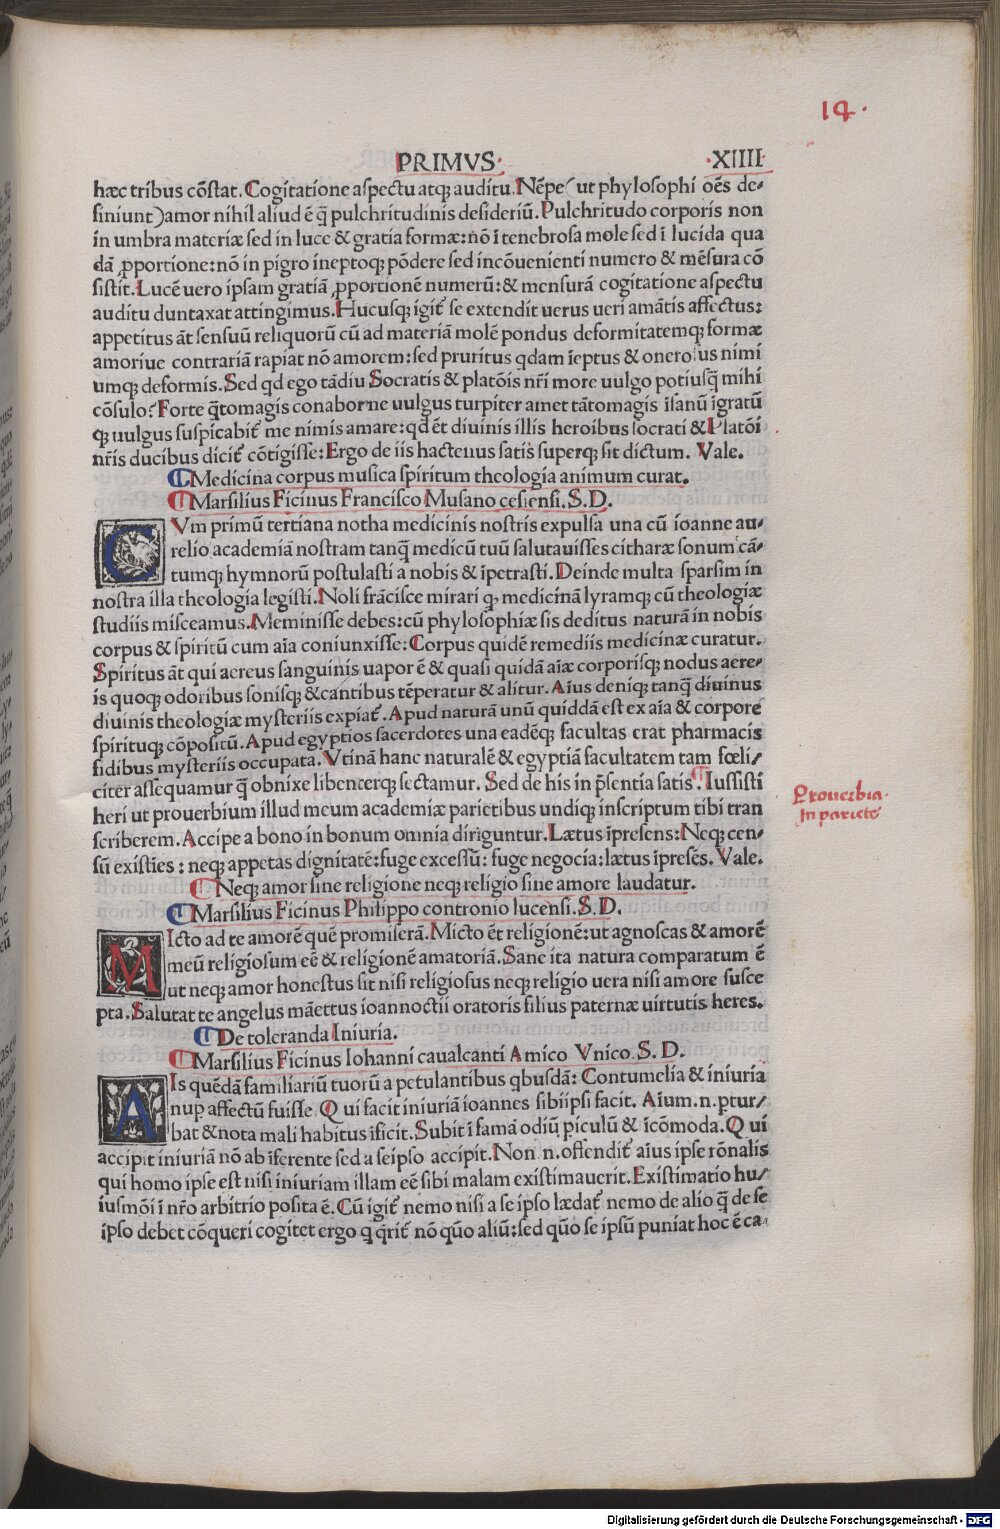 14.
PRIMVS. .XIIII.
hæc tribus cōstat. Cogitatione aspectu atq; auditu. Nēpe (ut phylosophi oēs de-
finiunt) amor nihil aliud ē q̄ pulchritudinis desideriū. Pulchritudo corporis non
in umbra materiæ sed in luce & gratia formæ: nō ī tenebrosa mole sed ī lucida qua
dā ꝓportione: nō in pigro ineptoq; pōdere sed incōuenienti numero & mēsura cō
sistit. Lucē uero ipsam gratiā ꝓportionē numerū: & mensurā cogitatione aspectu
auditu duntaxat attingimus. Hucusq; igit̄ se extendit uerus ueri amātis affectus:
appetitus āt sensuū reliquorū cū ad materiā molē pondus deformitatemq; formæ
amoriue contrariā rapiat nō amorem: sed pruritus qdam īeptus & onerosus nimi
umq; deformis. Sed qd ego tādiu Socratis & platōis nr̄i more uulgo potiusq̄ mihi
cōsulo? Forte q̄tomagis conabor ne uulgus turpiter amet tātomagis īsanū īgratū
q; uulgus suspicabit̄ me nimis amare: qd ēt diuinis illis heroibus socrati & Platōi
nr̄is ducibus dicit̄ cōtigisse: Ergo de iis hactenus satis superq; sit dictum. Vale.
¶ Medicina corpus musica spiritum theologia animum curat.
¶ Marsilius Ficinus Francisco Musano cesiensi. S. D.
CVm primū tertiana notha medicinis nostris expulsa una cū ioanne au-
relio academiā nostram tanq̄ medicū tuū salutauisses citharæ sonum cā-
tumq; hymnorū postulasti a nobis & īpetrasti. Deinde multa sparsim in
nostra illa theologia legisti. Noli frācisce mirari q, medicinā lyramq; cū theologiæ
studiis misceamus. Meminisse debes: cū phylosophiæ sis deditus naturā in nobis
corpus & spiritū cum aīa coniunxisse: Corpus quidē remediis medicinæ curatur.
Spiritus āt qui aereus sanguinis uapor ē & quasi quidā aīæ corporisq; nodus aere-
is quoq; odoribus sonisq; & cantibus tēperatur & alitur. Aīus deniq; tanq̄ diuinus
diuinis theologiæ mysteriis expiat̄. Apud naturā unū quiddā est ex aīa & corpore
spirituq; cōpositū. Apud egyptios sacerdotes una eadēq; facultas erat pharmacis
fidibus mysteriis occupata. Vtinā hanc naturalē & egyptiā facultatem tam fœli/
citer assequamur q̄ obnixe libenterq; sectamur. Sed de his in p̄sentia satis. ¶ Iussisti
heri ut prouerbium illud meum academiæ parietibus undiq; inscriptum tibi tran
scriberem. Accipe a bono in bonum omnia diriguntur. Lætus īpresens: Neq; cen-
sū existies: neq; appetas dignitatē: fuge excessū: fuge negocia: lætus īpresēs. Vale.
Prouerbia.
In pariete
¶ Neq; amor sine religione neq; religio sine amore laudatur.
¶ Marsilius Ficinus Philippo contronio lucensi. S. D.
MIcto ad te amorē quē promiserā. Micto ēt religionē: ut agnoscas & amorē
meū religiosum eē & religionē amatoriā. Sane ita natura comparatum ē
ut neq; amor honestus sit nisi religiosus neq; religio uera nisi amore susce
pta. Salutat te angelus māettus ioannoctii oratoris filius paternæ uirtutis heres.
¶ De toleranda Iniuria.
¶ Marsilius Ficinus Iohanni caualcanti Amico Vnico. S. D.
AIs quēdā familiariū tuorū a petulantibus qbusdā: Contumelia & iniuria
nup affectū fuisse. Qui facit iniuriā ioannes sibiipsi facit. Aīum. n. ptur/
bat & nota mali habitus īficit. Subit ī fama odiū piculū & īcōmoda. Qui
accipit iniuriā nō ab īferente sed a seipso accipit. Non. n. offendit̄ aīus ipse rōnalis
qui homo ipse est nisi iniuriam illam eē sibi malam existimauerit. Existimatio hu/
iusmōi ī nr̄o arbitrio posita ē. Cū igit̄ nemo nisi a se ipso lædat̄ nemo de alio q̄ de se
ipso debet cōqueri cogitet ergo q q̄rit̄ nō quō aliū: sed quō se ipsū puniat hoc ē ca
Digitalisierung gefördert durch die Deutsche Forschungsgemeinschaft - DFG